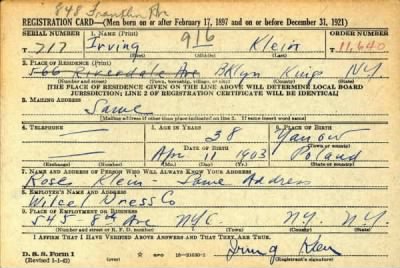 848 Franklin Ave
REGISTRATION CARD—(Men born on or after February 17, 1897 and on or before December 31, 1921)
SERIAL NUMBER 1. NAME (Print) ORDER NUMBER
T 717 Irving 916 Klein 11,640
(First) (Middle) (Last)
2. PLACE OF RESIDENCE (Print)
566 Riverdale Ave BKlyn Kings N.Y.
(Number and street) (Town, township, village, or city) (County) (State)
[THE PLACE OF RESIDENCE GIVEN ON THE LINE ABOVE WILL DETERMINE LOCAL BOARD
JURISDICTION; LINE 2 OF REGISTRATION CERTIFICATE WILL BE IDENTICAL]
3. MAILING ADDRESS
Same
[Mailing address if other than place indicated on line 2. If same insert word same]
4. TELEPHONE 5. AGE IN YEARS 6. PLACE OF BIRTH
38
DATE OF BIRTH (Town or county)
Apr 11 1903 Poland
(Exchange) (Number) (Mo.) (Day) (Yr.) (State or country)
7. NAME AND ADDRESS OF PERSON WHO WILL ALWAYS KNOW YOUR ADDRESS
Rose Klein - Same Address
8. EMPLOYER'S NAME AND ADDRESS
Wilcel Dress Co
9. PLACE OF EMPLOYMENT OR BUSINESS
545 - 8th Ave NYC. N.Y. N.Y.
(Number and street or R. F. D. number) (Town) (County) (State)
I AFFIRM THAT I HAVE VERIFIED ABOVE ANSWERS AND THAT THEY ARE TRUE.
D. S. S. Form 1 Irving Klein
(Revised 1-1-42) (Registrant's signature)